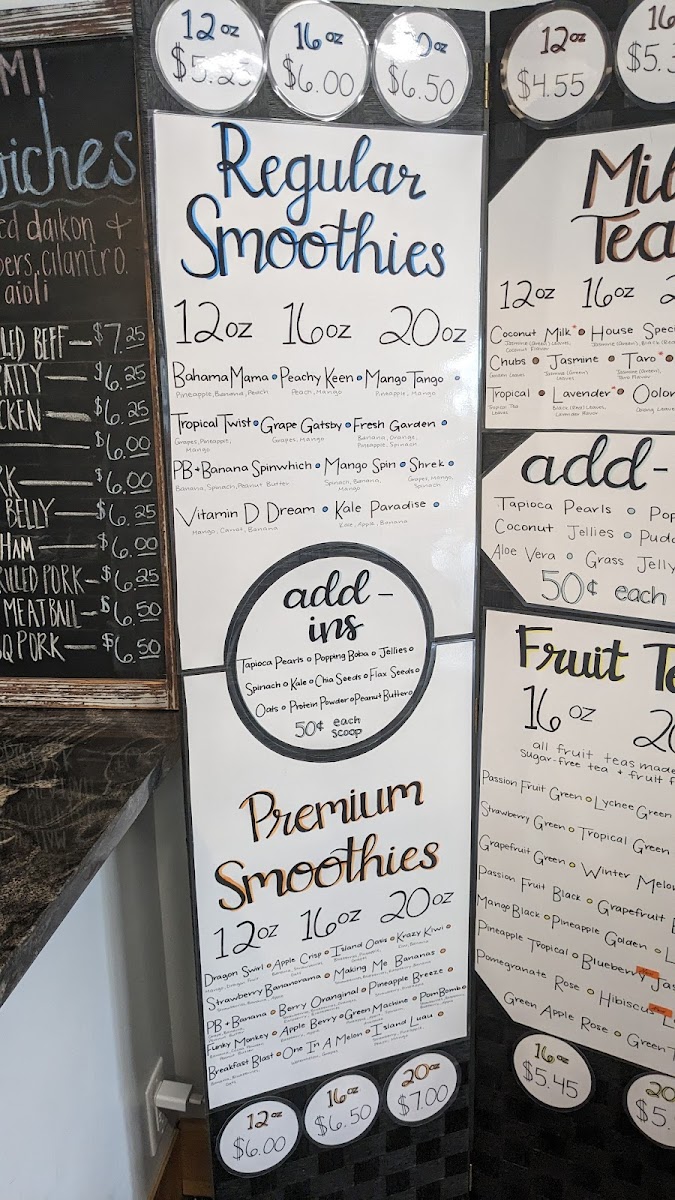 MI
iches
ed daikon &
pers, cilantro.
aioli
LED BEEF — $7.25
PATTY — $6.25
CKEN — $6.25
— $6.00
RK — $6.00
BELLY — $6.25
HAM — $6.00
RILLED PORK — $6.25
MEATBALL — $6.50
BQ PORK — $6.50
12oz $5.25
16oz $6.00
$6.50
Regular
Smoothies
12oz 16oz 20oz
Bahama Mama • Peachy Keen • Mango Tango •
Pineapple, Banana, Peach Peach, Mango Pineapple, Mango
Tropical Twist • Grape Gatsby • Fresh Garden •
Grapes, Pineapple, Mango Grapes, Mango Banana, Orange, Pineapple, Spinach
PB+Banana Spinwhich • Mango Spin • Shrek •
Banana, Spinach, Peanut Butter Spinach, Banana, Mango Grapes, Mango, Spinach
Vitamin D Dream • Kale Paradise •
Mango, Carrot, Banana Kale, Apple, Banana
add-
ins
Tapioca Pearls • Popping Boba • Jellies •
Spinach • Kale • Chia Seeds • Flax Seeds •
Oats • Protein Powder • Peanut Butter •
50¢ each
scoop
Premium
Smoothies
12oz 16oz 20oz
Dragon Swirl • Apple Crisp • Island Oasis • Krazy Kiwi •
Strawberry Bananorama • Making Me Bananas •
PB + Banana • Berry Oranginal • Pineapple Breeze •
Funky Monkey • Apple Berry • Green Machine • Pom Bomb •
Breakfast Blast • One In A Melon • Island Luau •
12oz $6.00
16oz $6.50
20oz $7.00
12oz $4.55
16
$5.3
Mil
Tea
12oz 16oz 2
Coconut Milk* • House Spec
Chubs • Jasmine • Taro* •
Tropical • Lavender* • Oolon
add-
Tapioca Pearls • Pop
Coconut Jellies • Pudd
Aloe Vera • Grass Jelly
50¢ each
Fruit Te
16oz 20
all fruit teas made
sugar-free tea + fruit f
Passion Fruit Green • Lychee Green
Strawberry Green • Tropical Green
Grapefruit Green • Winter Melo
Passion Fruit Black • Grapefruit B
Mango Black • Pineapple Golden • L
Pineapple Tropical • Blueberry Jas
Pomegranate Rose • Hibiscus L
Green Apple Rose • Green T
16oz $5.45
20 $5.